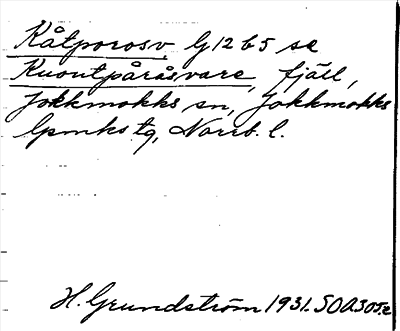 Kåtporosv G12b5 se
Kuoutpåråsvare, fjäll,
Jokkmokks sn, Jokkmokks
lpmks tg, Norrb. l.
H. Grundström 1931. SOA305:2